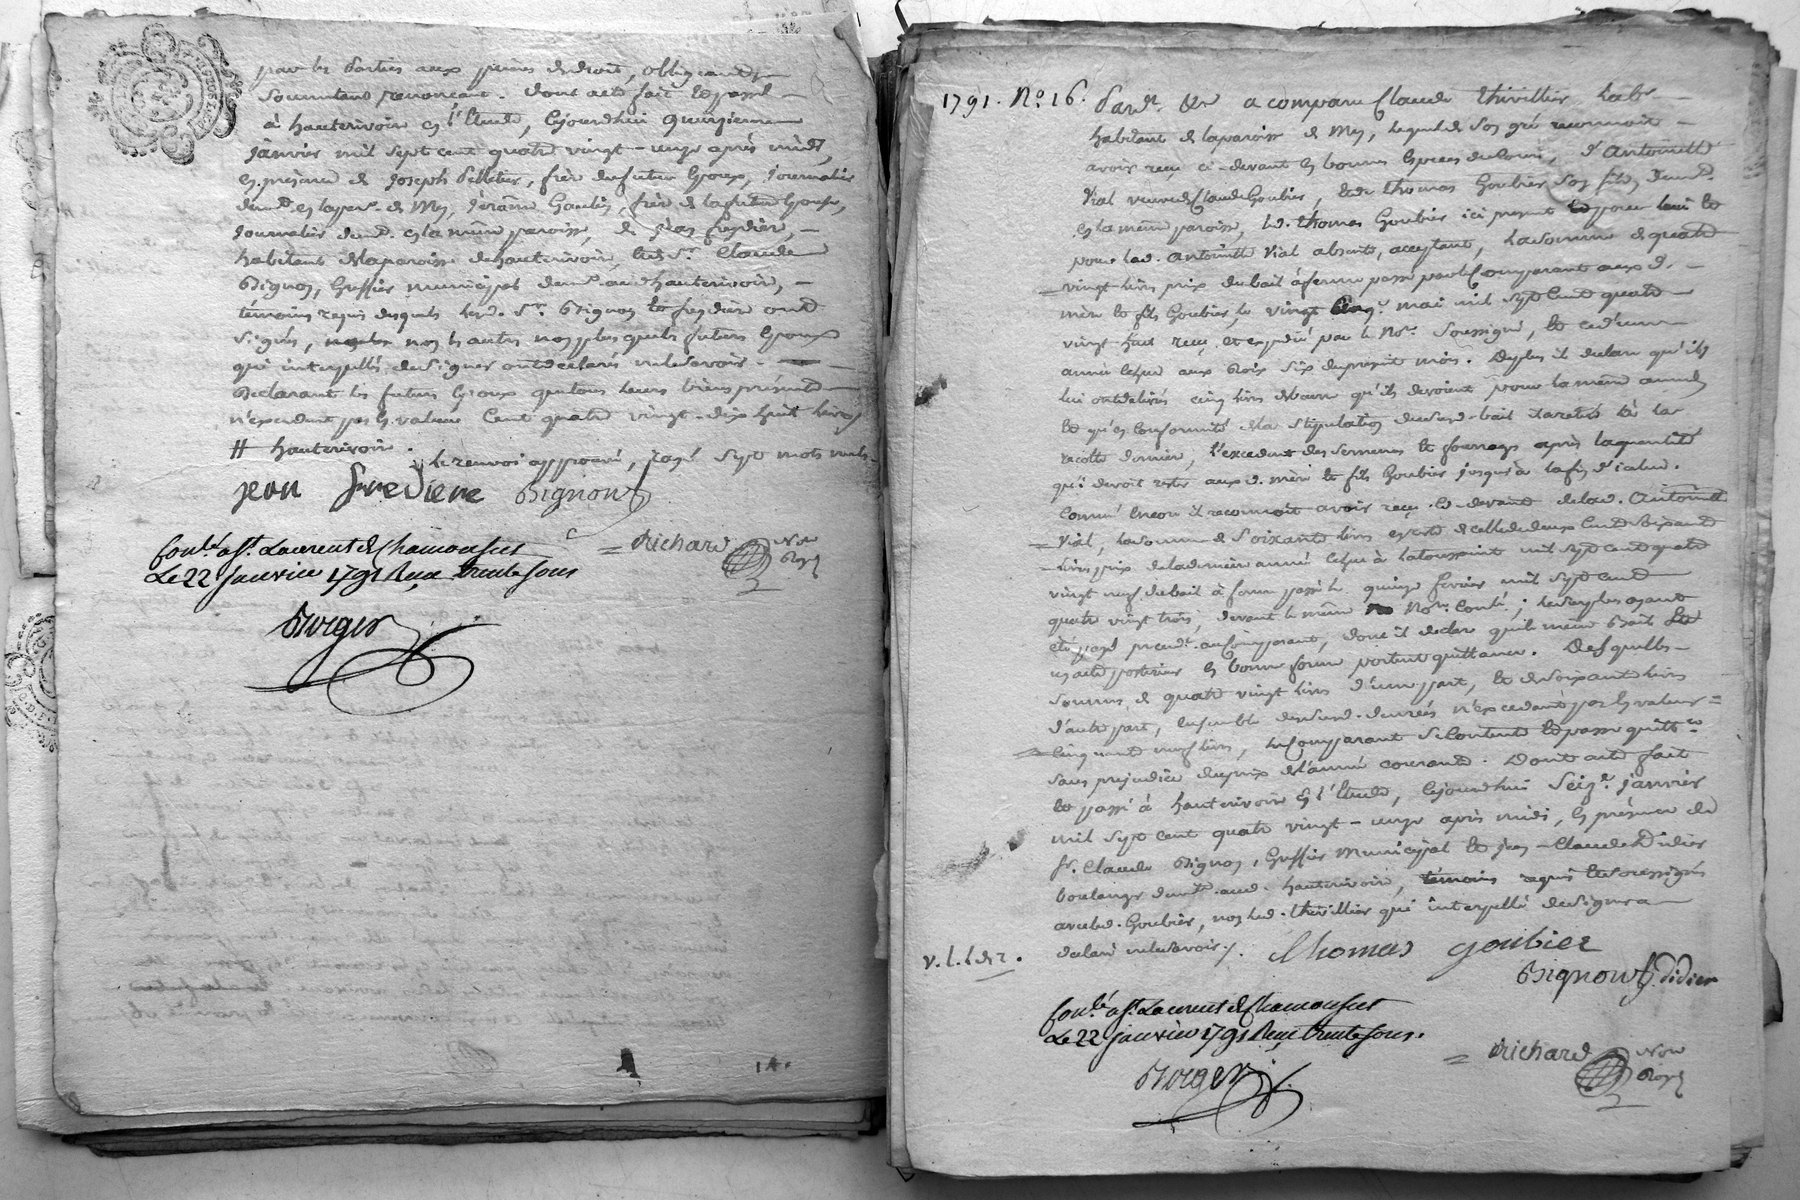 par les parties aux peines de droit, obligeant
soumettant renonceant. Dont acte fait et passé
à hauterivoire en l'Etude, cejourdhui quinzieme
janvier mil sept cent quatre vingt-onze après midi,
en présence de joseph Pelletier, frère du futur Epoux, journalier
demt. en la par. de Mys, jérame Goulin, frère de la future Epouse,
journalier demt. en la même paroisse, de jean fredière,
habitant de la paroisse de hauterivoire, et de Sr. Claude
Bignon, Greffier municipal demt. aud. hauterivoire,
témoins requis desquels lesd. Sr. Bignon et fredière ont
signés, non les autres non plus que les futurs Epoux
qui interpellés de signer ont déclarés ne le savoir.
Déclarant les futurs Epoux que tous leurs biens présents
n'excedent pas la valeur cent quatre vingt-dix huit livres
# hauterivoire.
le renvoi approuvé, rayé sept mots nuls.
jean fredière Bignon
Conlé. a St. Laurent de Chamousset
Le 22 janvier 1791 Reçu trente sous
= Richard Nore Royl
Borger
1791. No. 16. Pardt. etc a comparu Claude thivillier labr
habitant de la paroisse de Mys, lequel de son gré reconnoit
avoir reçu ci-devant en bonnes especes de cours, d'Antoinette
Vial veuve de Claude Goubier, et de thomas Goubier son fils demt.
en la même paroisse, led. thomas Goubier ici present et pour lui et
pour lad. Antoinette Vial absente, acceptant, la somme de quatre
vingt livres prix du bail à ferme passé par le Comparant aux d.
mère et fils Goubier, le vingt cinq. mai mil sept cent quatre
vingt huit reçu et expédié par le Nore. soussigné, et ce d'une
année echue aux Rois six du present mois. De plus il declare qu'ils
lui ont delivrés cinq livres de beure qu'ils devoient pour la même année
et qu'en conformité de la stipulation dud. bail
recolte derniere, l'excedent des semences et fourrages après la quantité
qui devoit rester aux d. mère et fils Goubier jusqu'à la fin d'icelui.
Comme encore il reconnoit avoir reçu ci-devant de lad. Antoinette
Vial, la somme de soixante livres reste de celle de deux cent soixante
livres prix de la derniere année echue à la toussaint mil sept cent quatre
vingt neuf du bail à ferme passé le quinze fevrier mil sept cent
quatre vingt trois, devant le même Nore. Conlé;
comparant, dont il declare
acte posterieur en bonne forme portant quittance. Desquelles
sommes de quatre vingt livres d'une part, et de soixante livres
d'autre part, ensemble desd. denrées n'excedant pas la valeur
cinquante neuf livres, le Comparant se contente et passe quitte.
sans prejudice du prix de l'année courante. Dont acte fait
et passé à hauterivoire en l'Etude, cejourdhui seize. janvier
mil sept cent quatre vingt-onze après midi, en présence de
sr. Claude Bignon, Greffier Municipal et jean-Claude Didier
boulanger demt. aud. hauterivoire, témoins requis et soussignés
avec led. Goubier, non led. thivillier qui interpellé de signer a
declaré ne le savoir./.
thomas goubier
Bignon J. didier
Conlé. a St. Laurent de Chamousset
Le 22 janvier 1791 Reçu trente sous.
= Richard Nore Royl
Borger